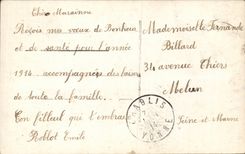 Chère Marraine
Reçois mes vœux de Bonheur
et de santé pour l'année
1914 accompagnés des baisers
de toute la famille.
Ton filleul qui t'embrasse
Roblot Emile
Mademoiselle Fernande
Billard
34 avenue Thiers
Melun
Seine et Marne
CHABLIS
YONNE